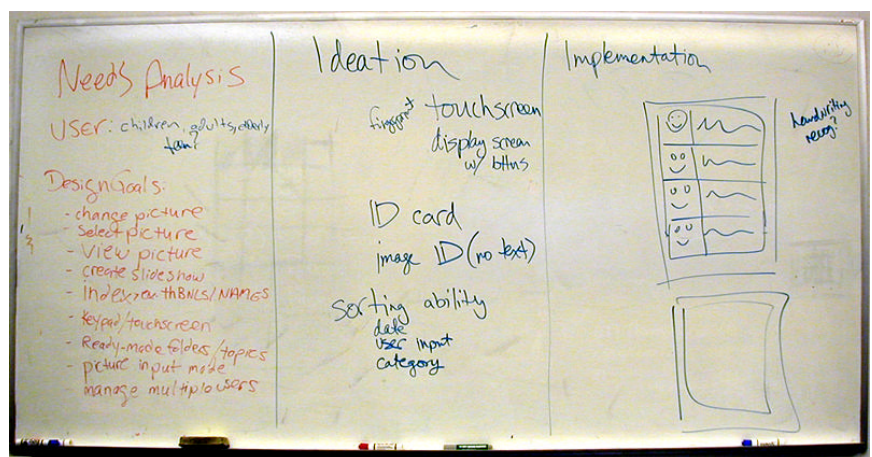 Needs Analysis
USER: children, adults, elderly
Design Goals:
- change picture
- select picture
- view picture
- create slideshow
- index, THBNLS/NAMES
- Keypad/touchscreen
- Ready-made folders/topics
- picture input mode
manage multiple users
Ideation
fingerprint touchscreen
display screen
w/ bttns
ID card
image ID (no text)
sorting ability
date
user input
category
Implementation
handwriting
recog?